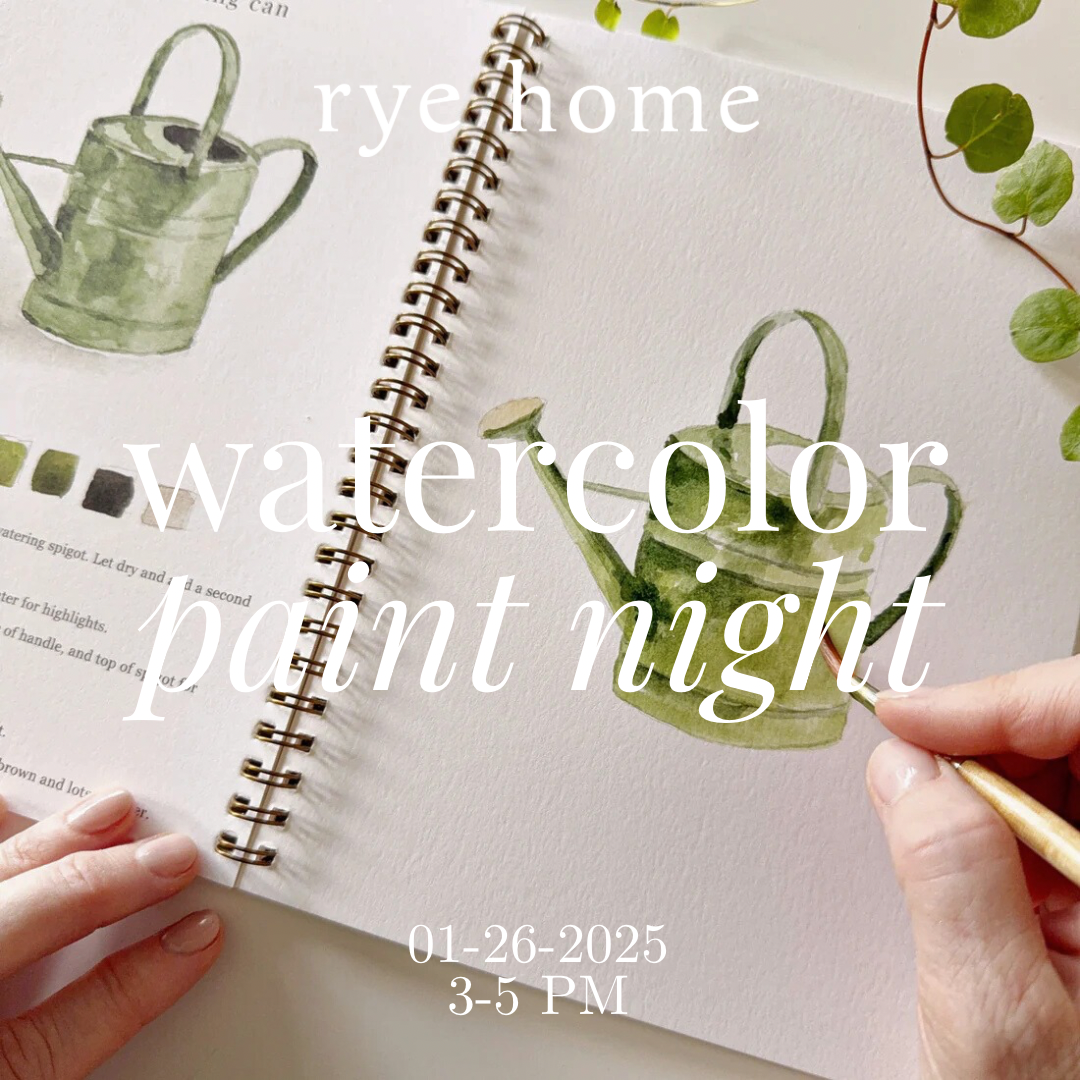 ng can
rye home
watercolor
paint night
watering spigot. Let dry and add a second
ter for highlights.
of handle, and top of spigot for
t.
brown and lots
er.
01-26-2025
3-5 PM